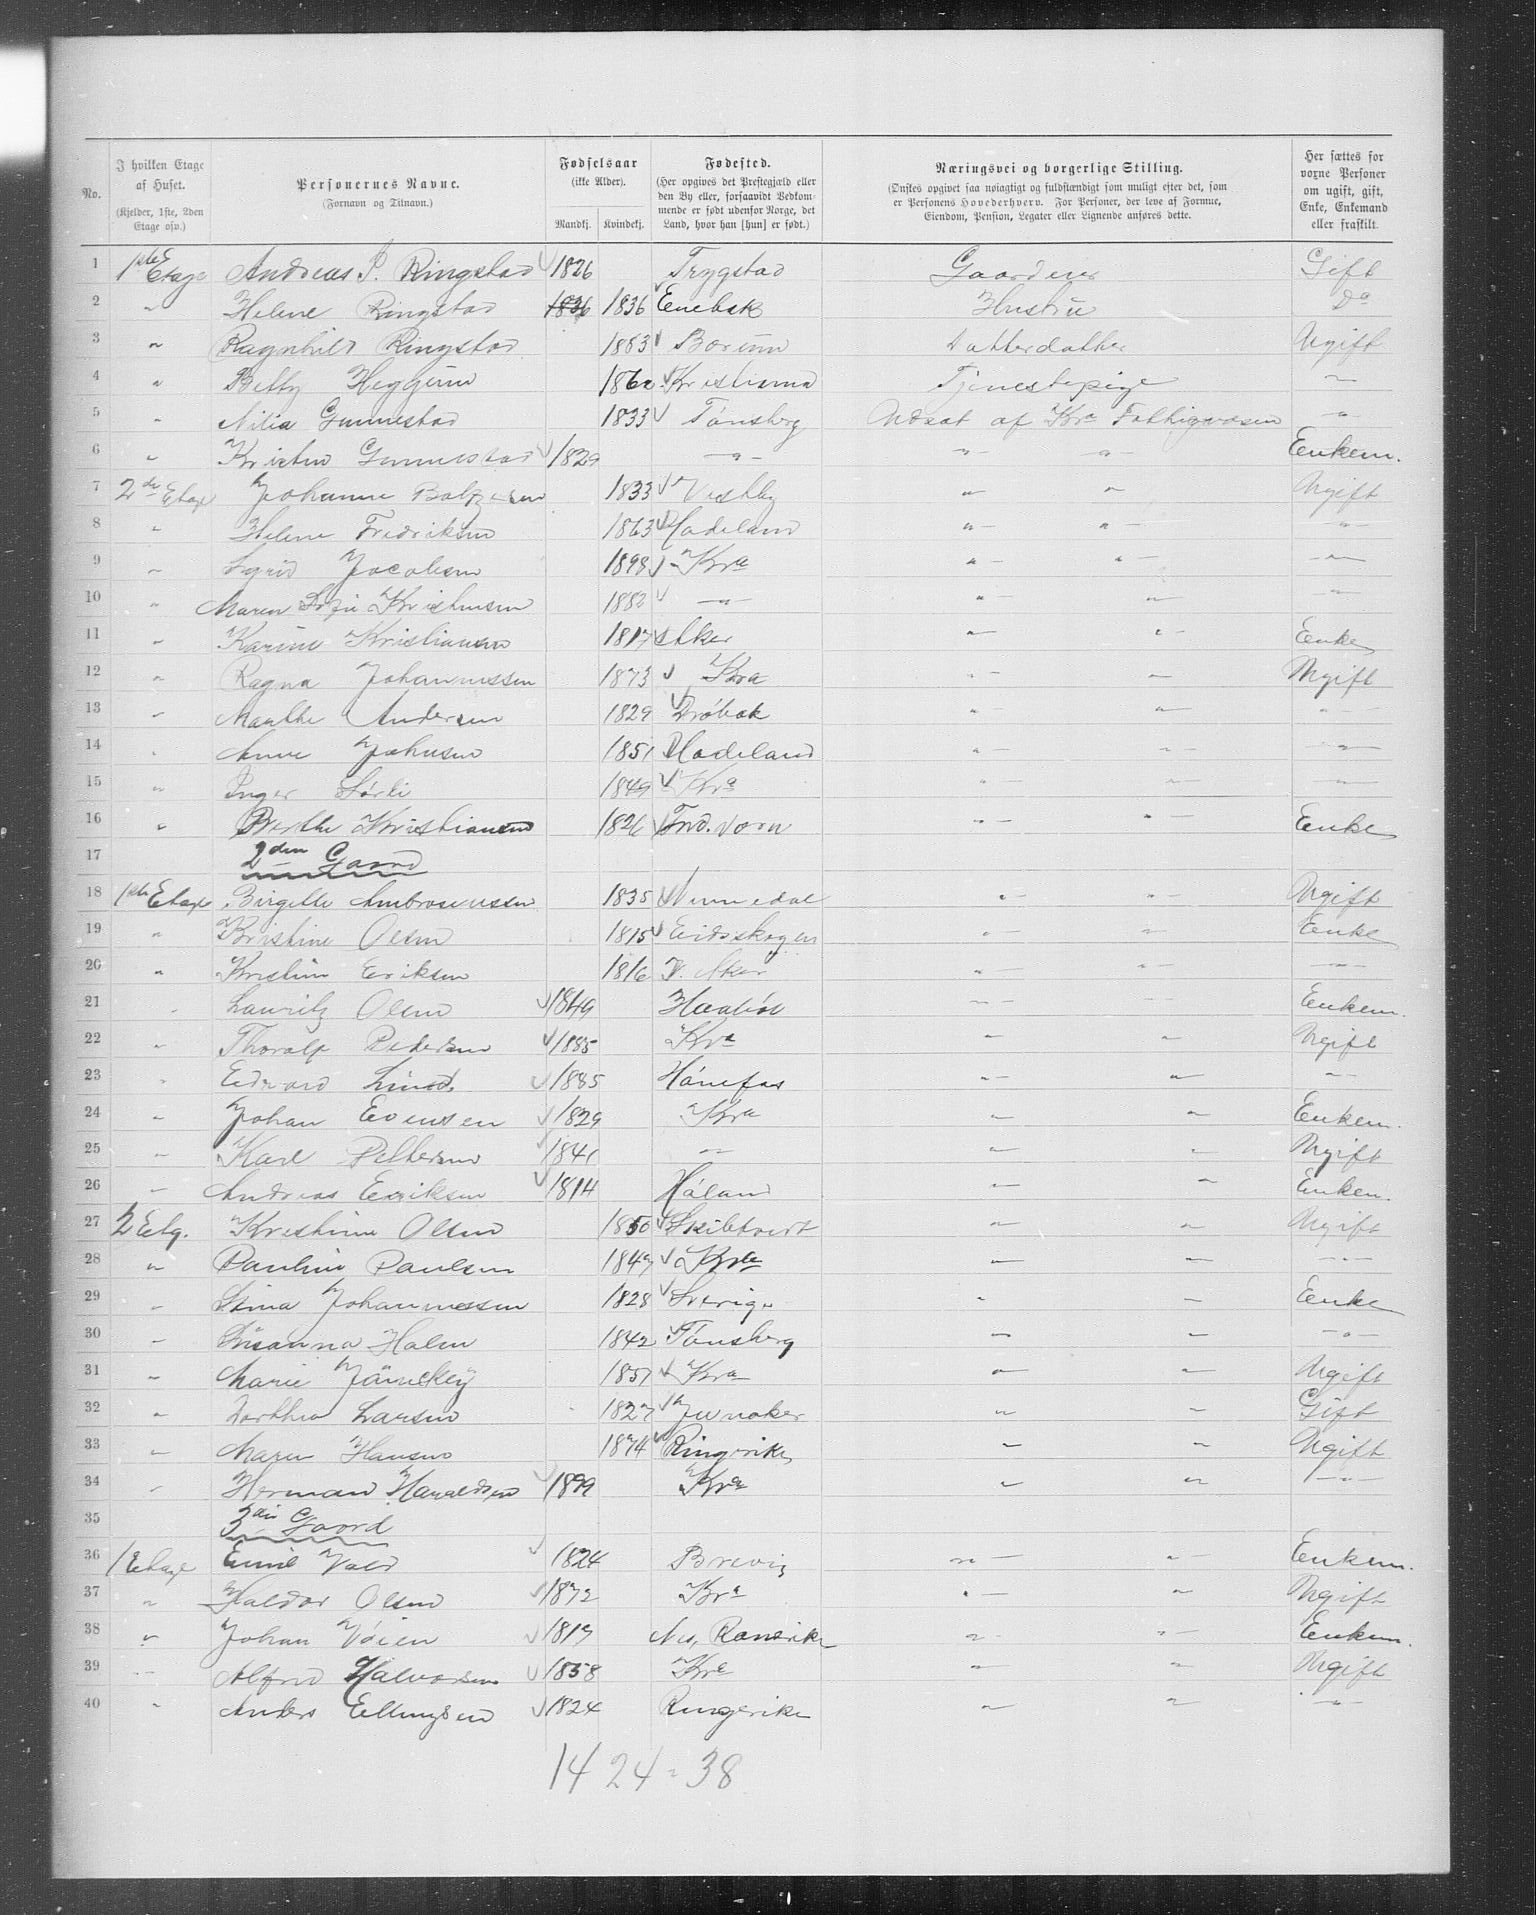 No. | I hvilken Etage af Huset. (Kjelder, 1ste, 2den Etage osv.) | Personernes Navne. (Fornavn og Tilnavn.) | Fødselsaar (ikke Alder). Mandkj. Kvindekj. | Fødested. (Her opgives det Prestegjæld eller den By eller, forsaavidt Vedkommende er født udenfor Norge, det Land, hvor han [hun] er født.) | Næringsvei og borgerlige Stilling. (Ønskes opgivet saa nøiagtigt og fuldstændigt som muligt efter det, som er Personens Hovederhverv. For Personer, der leve af Formue, Eiendom, Pension, Legater eller Lignende anføres dette. | Her sættes for voxne Personer om ugift, gift, Enke, Enkemand eller fraskilt.
1 1ste Etage Andreas P. Ringstad 1826 Trygstad Gaardeier Gift
2 " Helene Ringstad 1836 1836 Enebak Hustru Do
3 " Ragnhild Ringstad 1883 Borum Datterdatter Ugift
4 " Betty Heggum 1860 Kristiania Tjenestepige "
5 " Nilia Gunnestad 1833 Tønsberg Udsat af Kra Fattigvæsen "
6 " Kristen Gunnestad 1829 " " " Enkem.
7 2den Etage Johanne Baltzersen 1833 Vestby " " Ugift
8 " Helene Fredriksen 1863 Hadeland " " "
9 " Sigrid Jacobsen 1898 Kra " " "
10 " Maren Sofie Kristensen 1882 " " " "
11 " Karine Kristiansen 1817 Aker " " Enke
12 " Ragna Johannessen 1873 Kra " " Ugift
13 " Marthe Andersen 1829 Drøbak " " "
14 " Anne Johnsen 1851 Hadeland " " "
15 " Inger Sørli 1849 Kra " " "
16 " Berthe Kristiansen 1826 Ind. Vorn " " Enke
17 2den Gaard
18 1ste Etage Birgitte Ambrosiussen 1835 Nummedal " " Ugift
19 " Kristine Olsen 1815 Eidsskogen " " Enke
20 " Kristine Eriksen 1816 V. Aker " " "
21 " Lauritz Olsen 1849 Haabøl " " Enkem.
22 " Thoralf Pedersen 1885 Kra " " Ugift
23 " Edvard Lund 1885 Hønefos " " "
24 " Johan Evensen 1829 Kra " " Enkem.
25 " Karl Pettersen 1841 " " " Ugift
26 " Andreas Eriksen 1814 Høland " " Enkem.
27 2 Etg. Kristine Olsen 1850 Skibtvedt " " Ugift
28 " Pauline Paulsen 1847 Kra " " "
29 " Stina Johannessen 1828 Sverige " " Enke
30 " Susanna Holm 1842 Tønsberg " " "
31 " Marie 1857 Kra " " Ugift
32 " Dorthea Larsen 1827 Jevnaker " " Gift
33 " Maren Hansen 1874 Ringerike " " Ugift
34 " Herman Haraldsen 1899 Kra " " "
35 3die Gaard
36 1 Etage Emil Vold 1824 Brevig " " Enkem.
37 " Haldor Olsen 1872 Kra " " Ugift
38 " Johan Vøien 1819 Nes, Romerike " " Enkem.
39 " Alfred Halvorsen 1858 Kra " " Ugift
40 " Anders Ellingsen 1824 Ringerike " " "
14 24 = 38